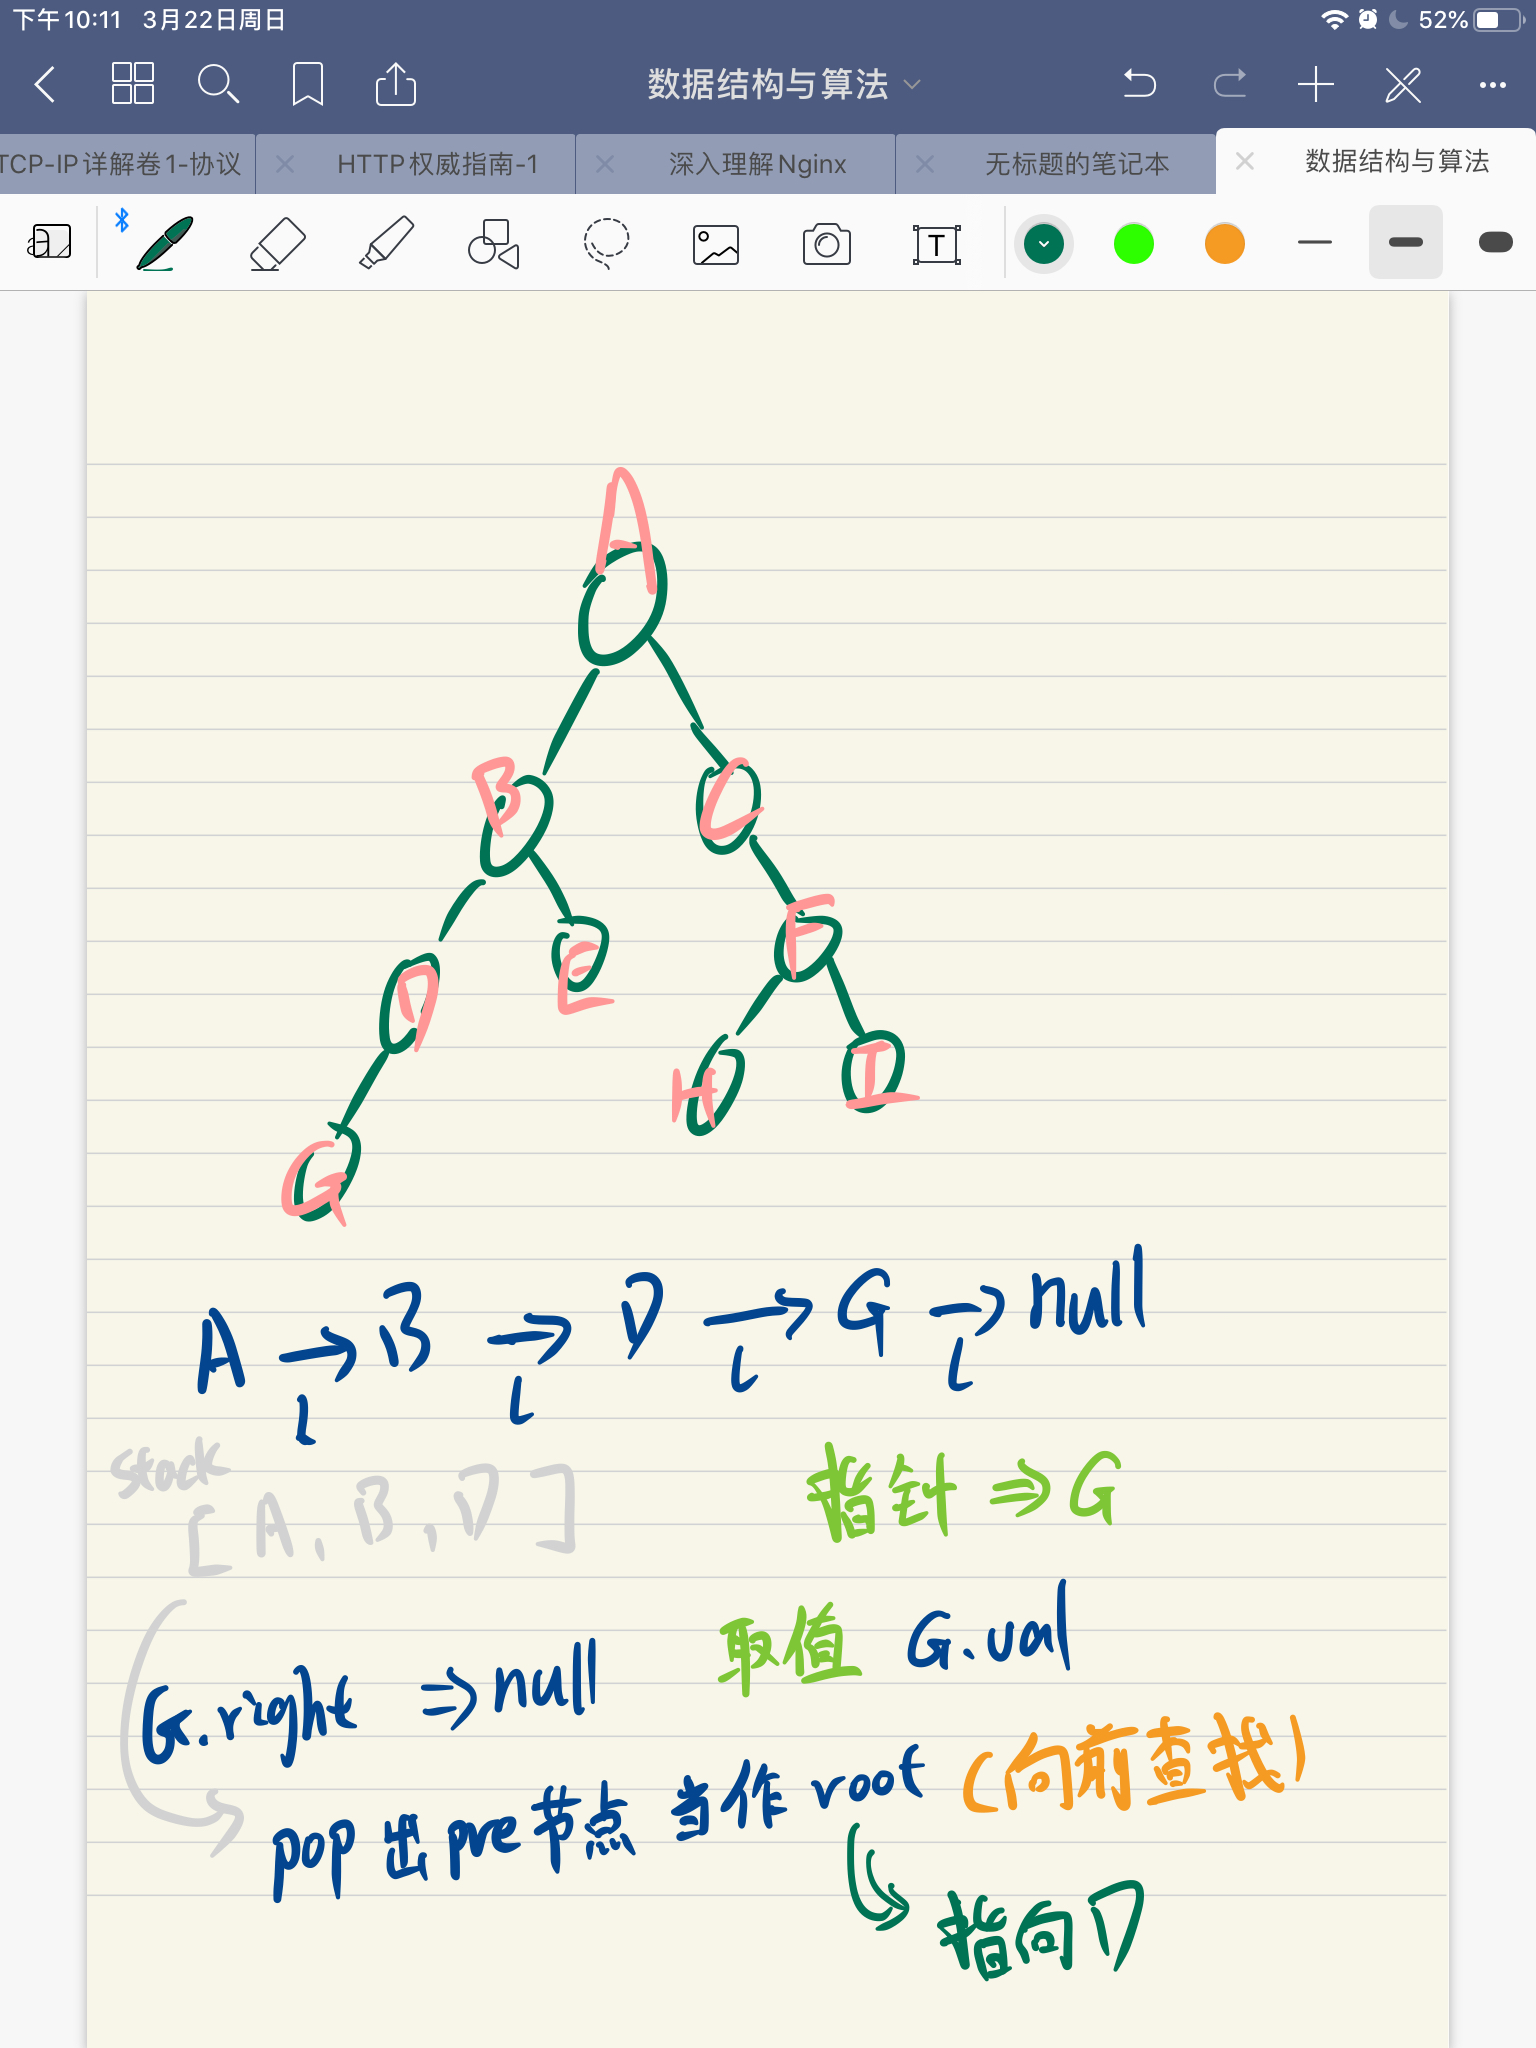 下午10:11 3月22日周日 52%
数据结构与算法
TCP-IP详解卷1-协议 HTTP权威指南-1 深入理解Nginx 无标题的笔记本 数据结构与算法
T
A
B C
D E F
G H I
A → B → D → G → null
L L L L
stack
[A, B, D] 指针 ⇒ G
取值 G.val
G.right ⇒ null
pop出pre节点 当作root (向前查找)
指向D